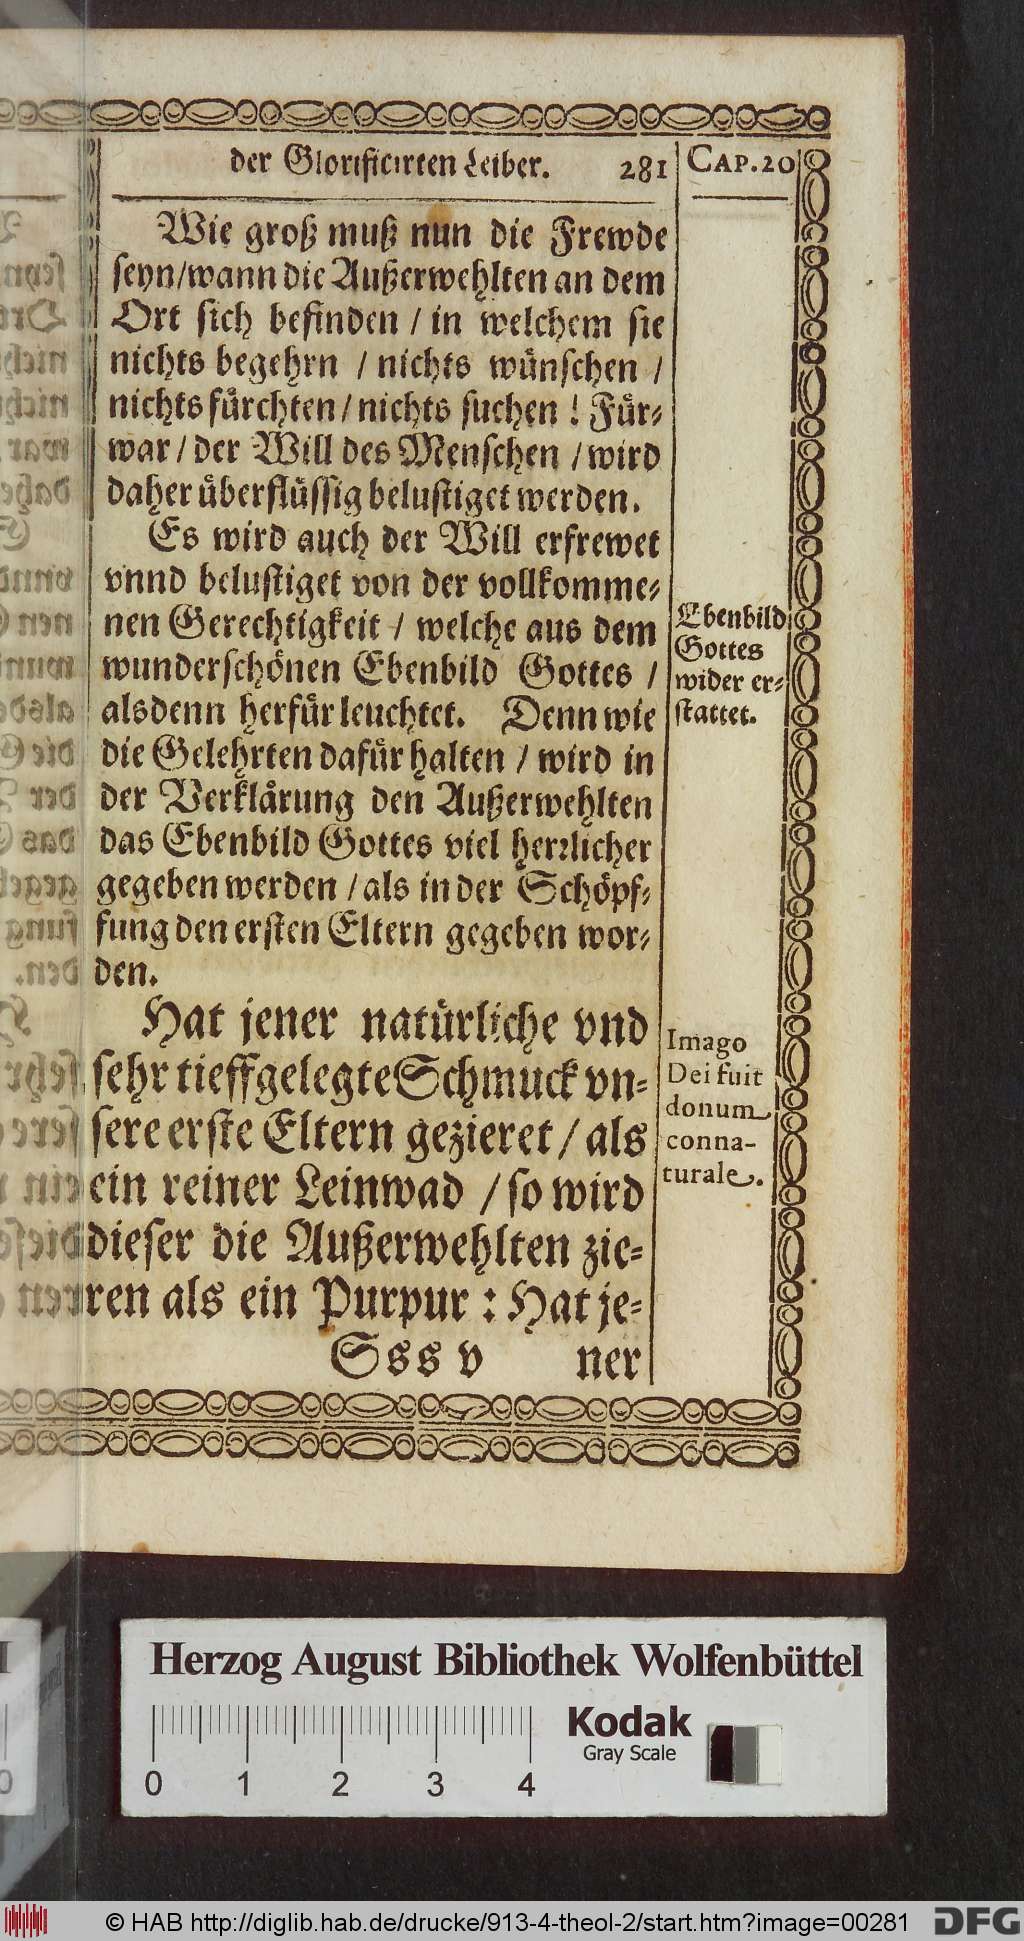 der Glorificirten Leiber. 281 CAP. 20
Wie groß muß nun die Frewde
seyn/wann die Außerwehlten an dem
Ort sich befinden / in welchem sie
nichts begehrn / nichts wünschen /
nichts fürchten / nichts suchen ! Für-
war / der Will des Menschen / wird
daher überflüssig belustiget werden.
Es wird auch der Will erfrewet
vnnd belustiget von der vollkomme-
nen Gerechtigkeit / welche aus dem
wunderschönen Ebenbild Gottes /
alsdenn herfür leuchtet. Denn wie
die Gelehrten dafür halten / wird in
der Verklärung den Außerwehlten
das Ebenbild Gottes viel herrlicher
gegeben werden / als in der Schöpf-
fung den ersten Eltern gegeben wor-
den.
Ebenbild
Gottes
wider er-
stattet.
Hat jener natürliche vnd
sehr tieffgelegte Schmuck vn-
sere erste Eltern gezieret / als
ein reiner Leinwad / so wird
dieser die Außerwehlten zie-
ren als ein Purpur : Hat je-
Imago
Dei fuit
donum
conna-
turale.
Sss v ner
Herzog August Bibliothek Wolfenbüttel
Kodak
Gray Scale
0 1 2 3 4
© HAB http://diglib.hab.de/drucke/913-4-theol-2/start.htm?image=00281
DFG